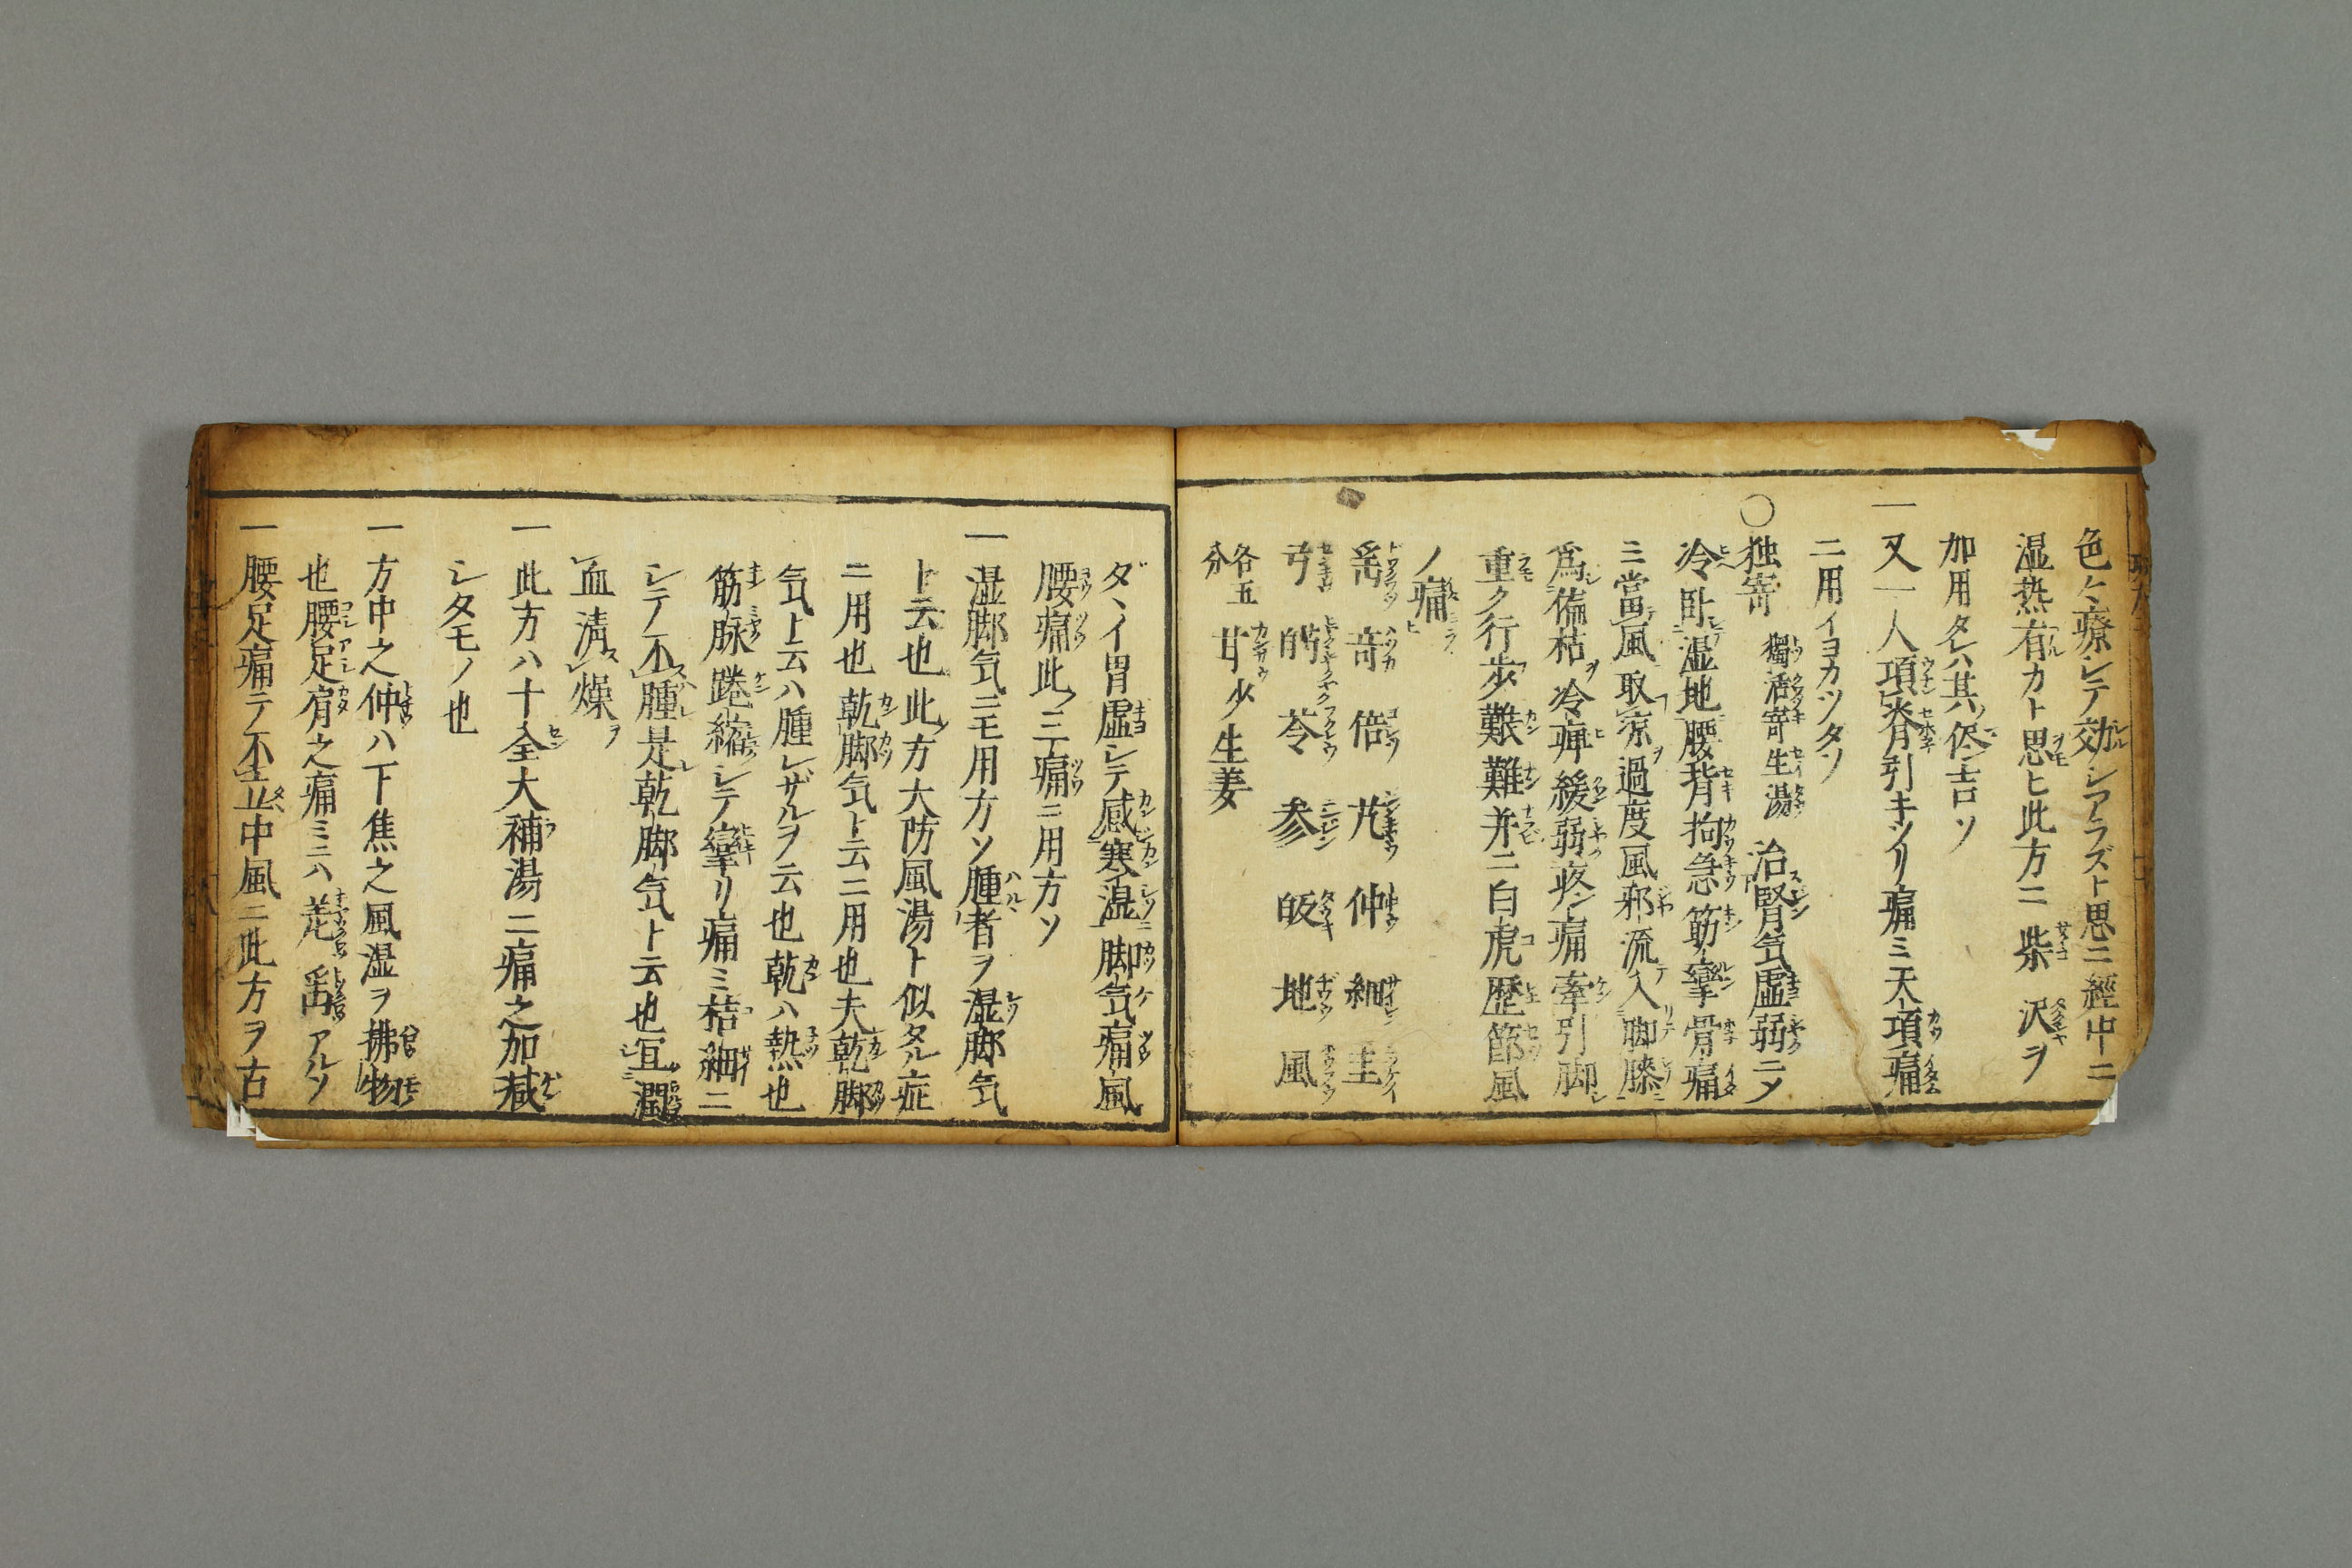 色々療シテ効シアラズト思ニ經中ニ
湿热有カト思ヒ此方ニ柴沢ヲ
加用タレハ其侭吉ソ
一又一人項脊引キツリ痛ミ天項痛
二用イヨカツタソ
〇独寄 獨活寄生湯 治腎気虚弱ニメ
冷卧湿地腰背拘急筋攣骨痛
三當風取凉過度風邪流入脚膝
為偏枯冷痺緩弱疼痛牽引脚
重ク行歩艱難并ニ白虎歴節風
ノ痛
寄 倍 芃 仲 細 圭
芎 芍 苓 参 皈 地 風
各五分 甘少 生姜
ダヽイ胃虚シテ感寒湿脚気痛風
腰痛此ノ三痛ニ用方ソ
一湿脚気ニモ用方ソ腫者ヲ湿脚気
ト云也此方大防風湯ト似タル症
ニ用也乾脚気ト云ニ用也夫乾脚
気ト云ハ腫レザルヲ云也乾ハ熱也
筋脉踡縮シテ攣リ痛ミ枯細ニ
シテ不腫是乾脚気ト云也宜潤
血清燥ヲ
一此方ハ十全大補湯ニ痛之加減
シタモノ也
一方中之仲ハ下焦之風湿ヲ拂物
也腰足肩之痛ミニハ羌 アルソ
一腰足痛テ不 中風ニ此方ヲ古